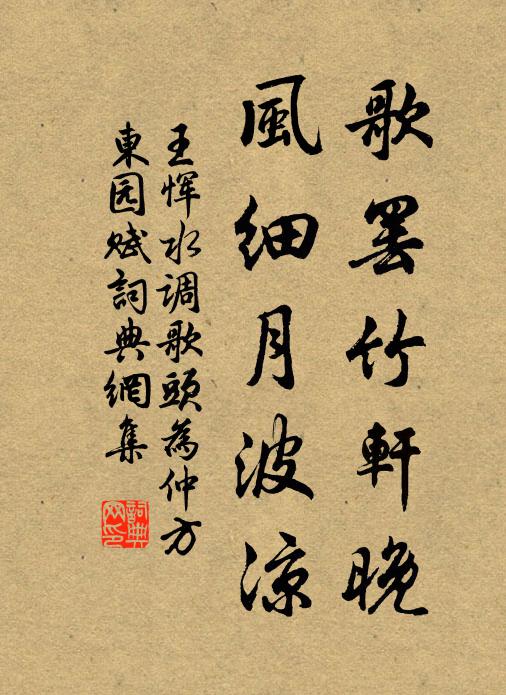 歌罢竹軒晚
風细月波凉
王恽水调歌頭為仲方
東园赋詞典網集
詞典網印